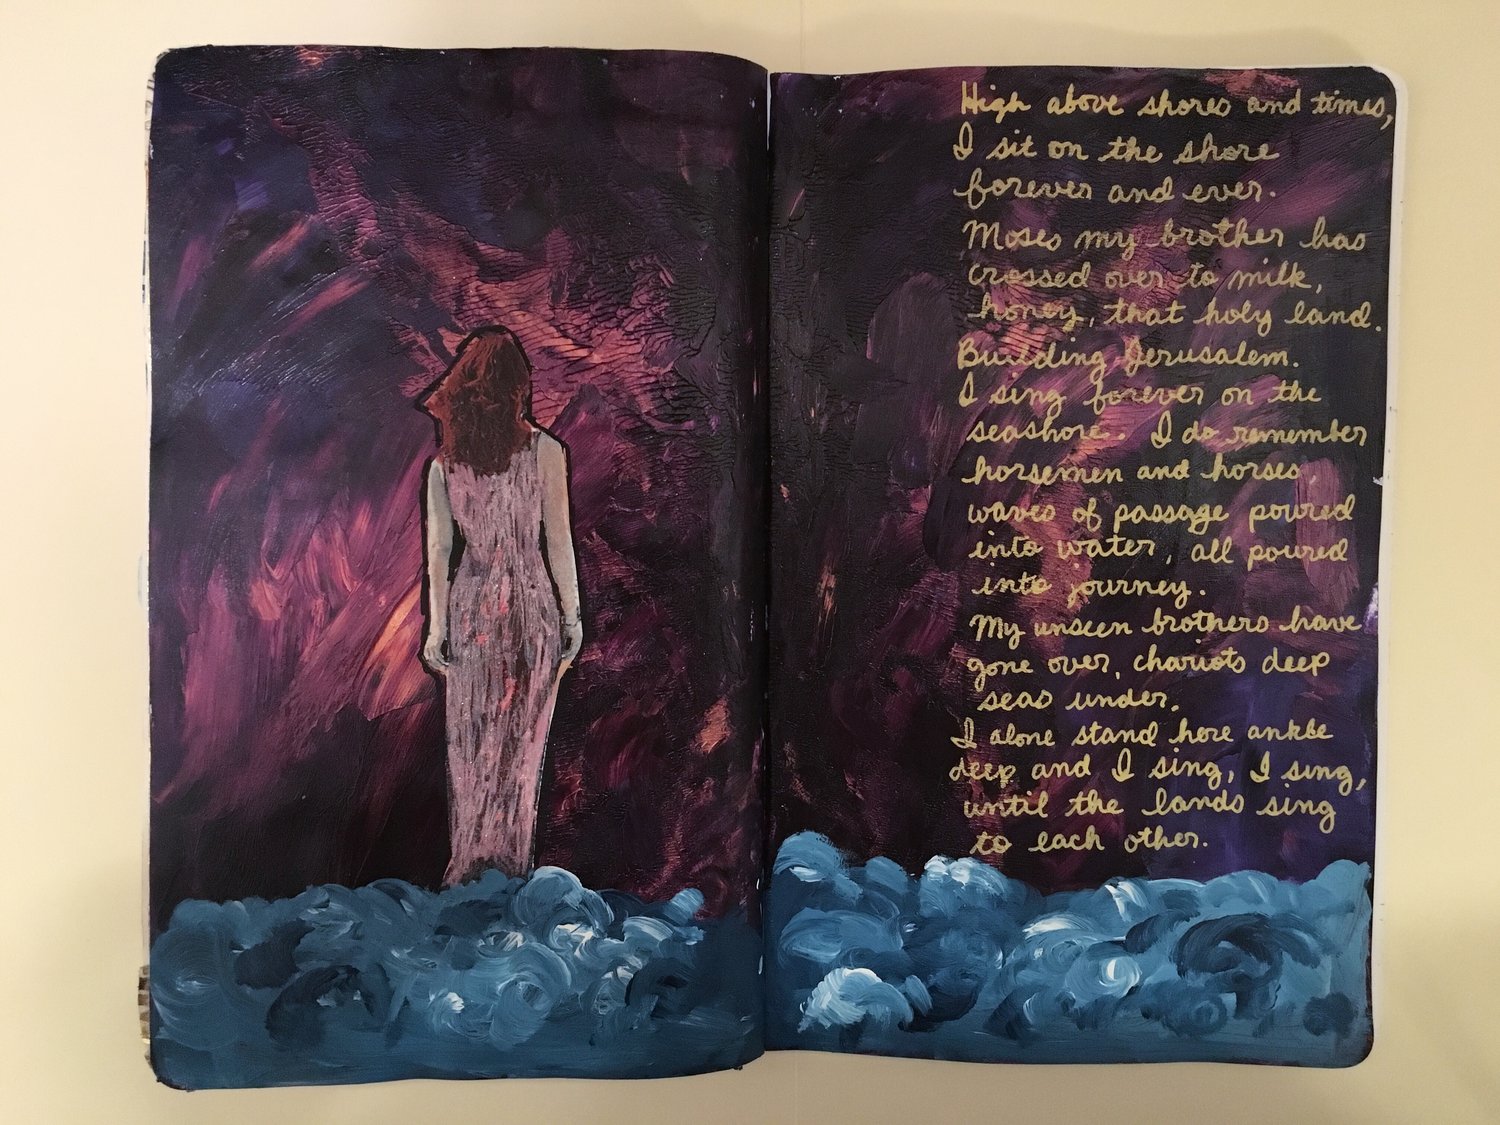 High above shores and times,
I sit on the shore
forever and ever.
Moses my brother has
crossed over to milk,
honey, that holy land.
Building Jerusalem.
I sing forever on the
seashore. I do remember
horsemen and horses,
waves of passage poured
into water, all poured
into journey.
My unseen brothers have
gone over, chariots deep
seas under.
I alone stand here ankle
deep and I sing, I sing,
until the lands sing
to each other.